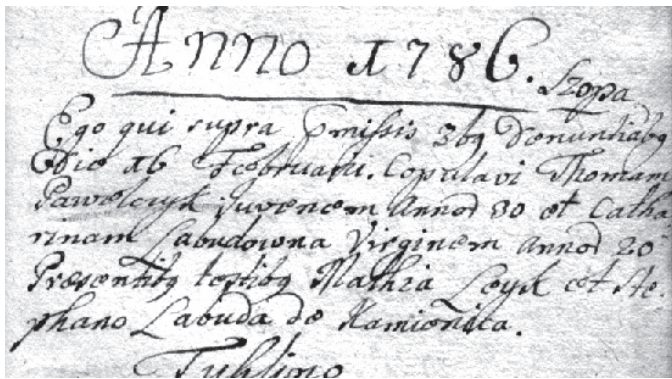 Anno 1786.
Szopa
Ego qui supra Pmissis 3bq Denuntiabq
Die 16 Februarii. Copulavi Thomam
Pawelczyk Juvenem Annor 30 et Catha
rinam Labudowna Virginem Annor 20
Præsentibq testibq Mathia Leyk et Ste
phano Labuda de Kamionka.
Tuhlino